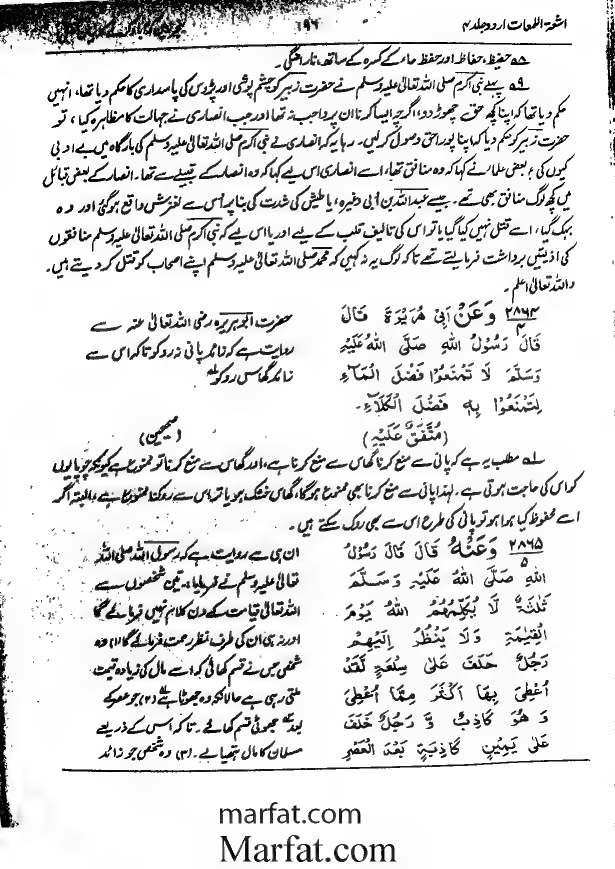 اشعۃ اللمعات اردو جلد ۴
۱۹۶
۵۸ حفیظ، حفاظ اور حفظ حاء کے کسرہ کے ساتھ، ناراضگی۔
۵۹ پہلے نبی اکرم صلی اللہ تعالیٰ علیہ وسلم نے حضرت زبیر کو چشم پوشی اور پڑوس کی پاسداری کا حکم دیا تھا، انہیں
حکم دیا تھا کہ اپنا کچھ حق چھوڑ دو، اگرچہ ایسا کرنا ان پر واجب نہ تھا اور جب انصاری نے جہالت کا مظاہرہ کیا، تو
حضرت زبیر کو حکم دیا کہ اپنا پورا حق وصول کر لیں۔ رہا یہ کہ انصاری نے نبی اکرم صلی اللہ تعالیٰ علیہ وسلم کی بارگاہ میں بے ادبی
کیوں کی؟ بعض علماء نے کہا کہ وہ منافق تھا، اسے انصاری اس لیے کہا کہ وہ انصار کے قبیلے سے تھا۔ انصار کے بعض قبائل
میں کچھ لوگ منافق بھی تھے۔ جیسے عبداللہ بن ابی وغیرہ، یا طیش کی شدت کی بنا پر اُس سے لغزش واقع ہو گئی اور وہ
بہک گیا، اسے قتل نہیں کیا گیا یا تو اس کی تالیف قلب کے لیے اور یا اس لیے کہ نبی اکرم صلی اللہ تعالیٰ علیہ وسلم منافقوں
کی اذیتیں برداشت فرما لیتے تھے تاکہ لوگ یہ نہ کہیں کہ محمد صلی اللہ تعالیٰ علیہ وسلم اپنے اصحاب کو قتل کر دیتے ہیں۔
واللہ تعالیٰ اعلم۔
۲۸۶۴/۴ وَعَنْ اَبِیْ ھُرَیْرَۃَ قَالَ
قَالَ رَسُوْلُ اللّٰہِ صَلَّی اللّٰہُ عَلَیْہِ
وَسَلَّمَ لَا تَمْنَعُوْا فَضْلَ الْمَآءِ
لِتَمْنَعُوْا بِہٖ فَضْلَ الْکَلَاءِ۔
(مُتَّفَقٌ عَلَیْہِ)
حضرت ابوہریرہ رضی اللہ تعالیٰ عنہ سے
روایت ہے کہ زائد پانی نہ روکو تاکہ اس سے
زائد گھاس روکو ۱؎
(صحیحین)
۱؎ مطلب یہ ہے کہ پانی سے منع کرنا گھاس سے منع کرنا ہے، اور گھاس سے منع کرنا تو ممنوع ہے کیونکہ چوپایوں
کو اس کی حاجت ہوتی ہے۔ لہٰذا پانی سے منع کرنا بھی ممنوع ہوگا، گھاس خشک ہو یا تر اس سے روکنا ممنوع ہے، البتہ اگر
اسے محفوظ کیا ہوا ہو تو پانی کی طرح اس سے بھی روک سکتے ہیں۔
۲۸۶۵/۵ وَعَنْہُ قَالَ قَالَ رَسُوْلُ
اللّٰہِ صَلَّی اللّٰہُ عَلَیْہِ وَسَلَّمَ
ثَلٰثَۃٌ لَا یُکَلِّمُھُمُ اللّٰہُ یَوْمَ
الْقِیٰمَۃِ وَلَا یَنْظُرُ اِلَیْھِمْ
رَجُلٌ حَلَفَ عَلٰی سِلْعَۃٍ لَقَدْ
اُعْطِیَ بِھَا اَکْثَرَ مِمَّا اُعْطِیَ
وَ ھُوَ کَاذِبٌ وَّ رَجُلٌ حَلَفَ
عَلٰی یَمِیْنٍ کَاذِبَۃٍ بَعْدَ الْعَصْرِ
ان ہی سے روایت ہے کہ رسول اللہ صلی اللہ
تعالیٰ علیہ وسلم نے فرمایا: تین شخصوں سے
اللہ تعالیٰ قیامت کے دن کلام نہیں فرمائے گا
اور نہ ہی ان کی طرف نظر رحمت فرمائے گا (۱) وہ
شخص جس نے قسم کھائی کہ اسے مال کی زیادہ قیمت
ملتی رہی ہے حالانکہ وہ جھوٹا ہے (۲) جو عصر کے
بعد جھوٹی قسم کھائے۔ تاکہ اس کے ذریعے
مسلمان کا مال ہتھیا لے۔ (۳) وہ شخص جو زائد
marfat.com
Marfat.com